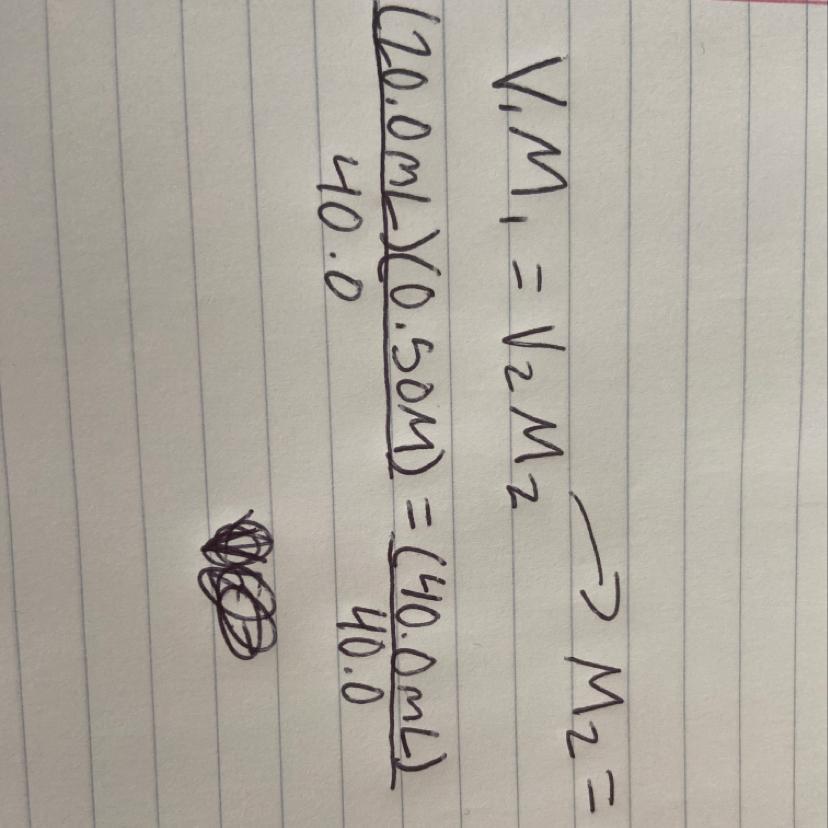 V₁M₁ = V₂M₂ → M₂ =
(20.0mL)(0.50M) = (40.0mL)
40.0 40.0